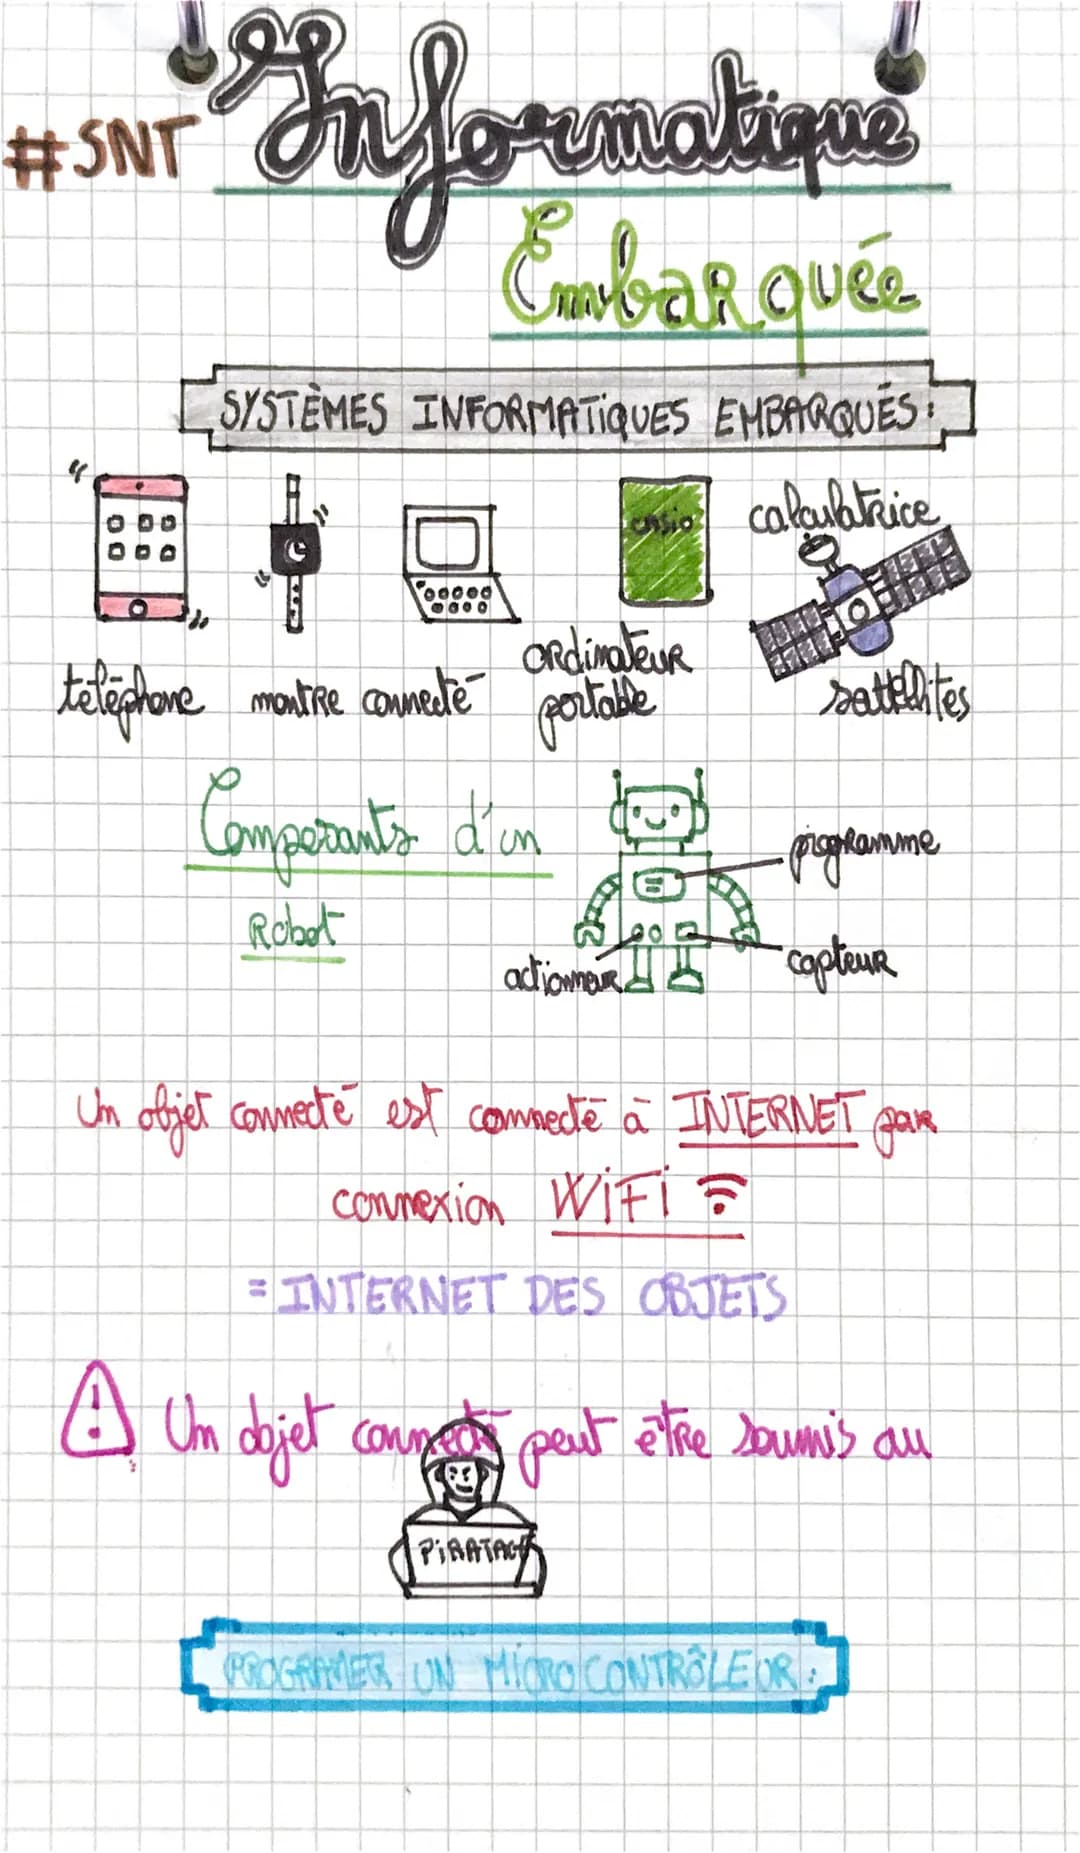 #SNT Informatique
Embarquée
SYSTÈMES INFORMATIQUES EMBARQUÉS:
casio
calculatrice
téléphone
montre connecté
ordinateur
portable
sattélites
Composants d'un
Robot
programme
capteur
actionneur
Un objet connecté est connecté à INTERNET par
connexion WiFi
= INTERNET DES OBJETS
Un objet connecté peut être soumis au
PiRATAGE
PROGRAMER UN MiCROCONTRÔLEUR: